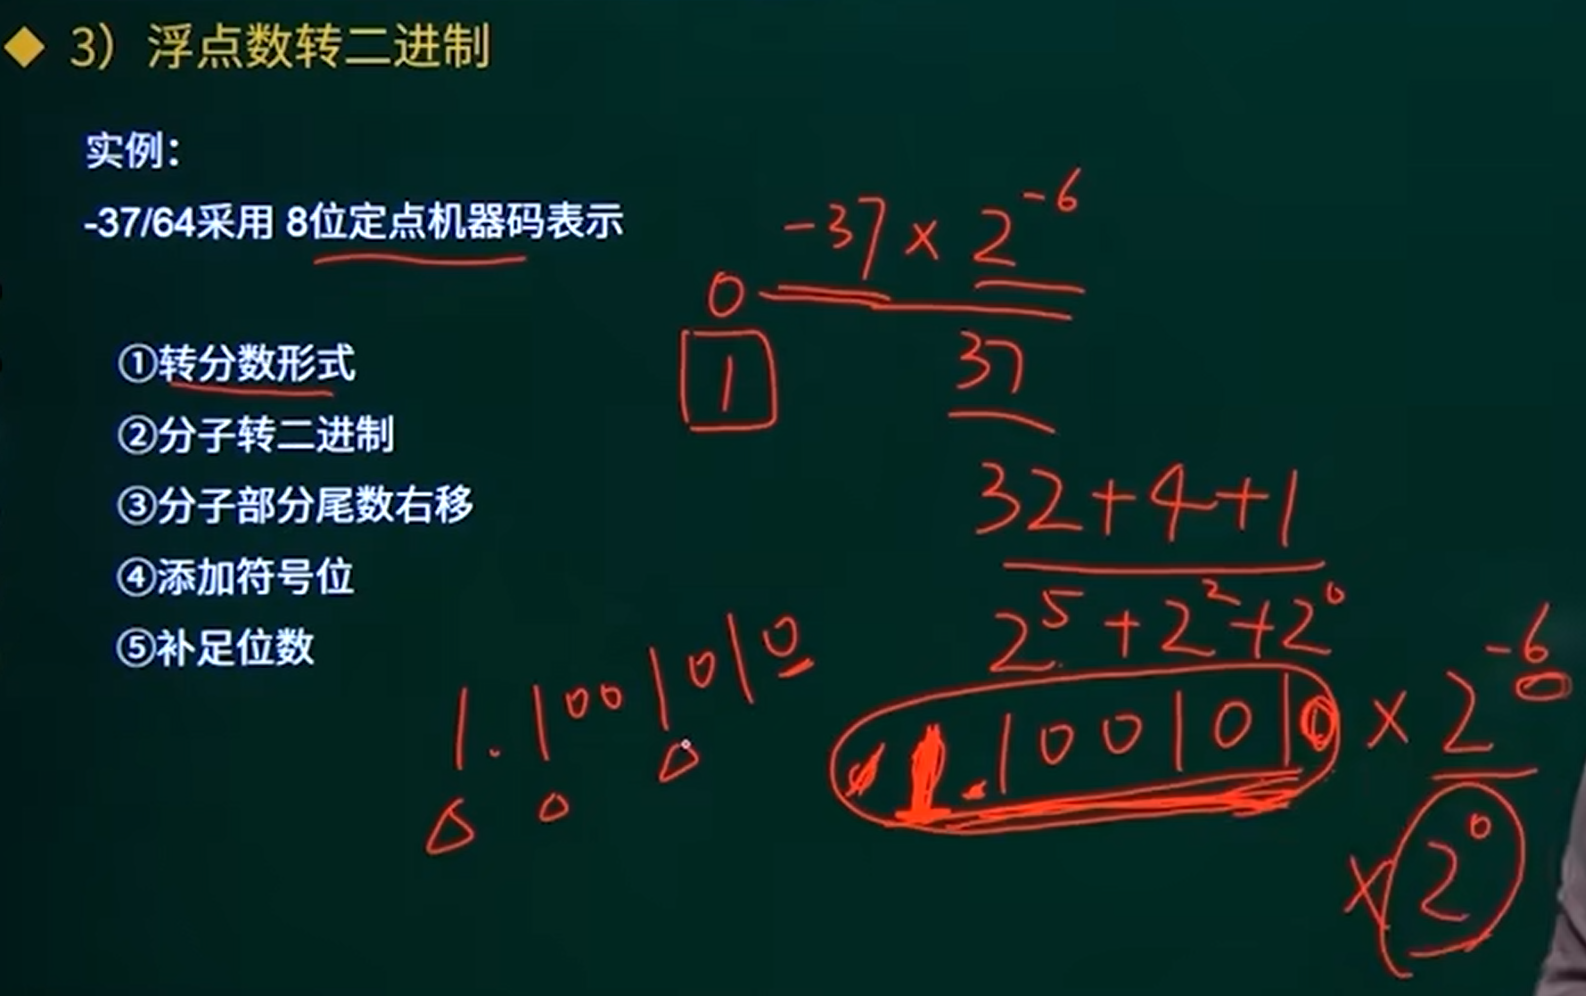 ◆ 3）浮点数转二进制
实例：
-37/64采用 8位定点机器码表示
①转分数形式
②分子转二进制
③分子部分尾数右移
④添加符号位
⑤补足位数
-37 × 2^-6
0
1
37
32+4+1
2^5 + 2^2 + 2^0
1.1001010
1.1001010 × 2^-6
× 2^0